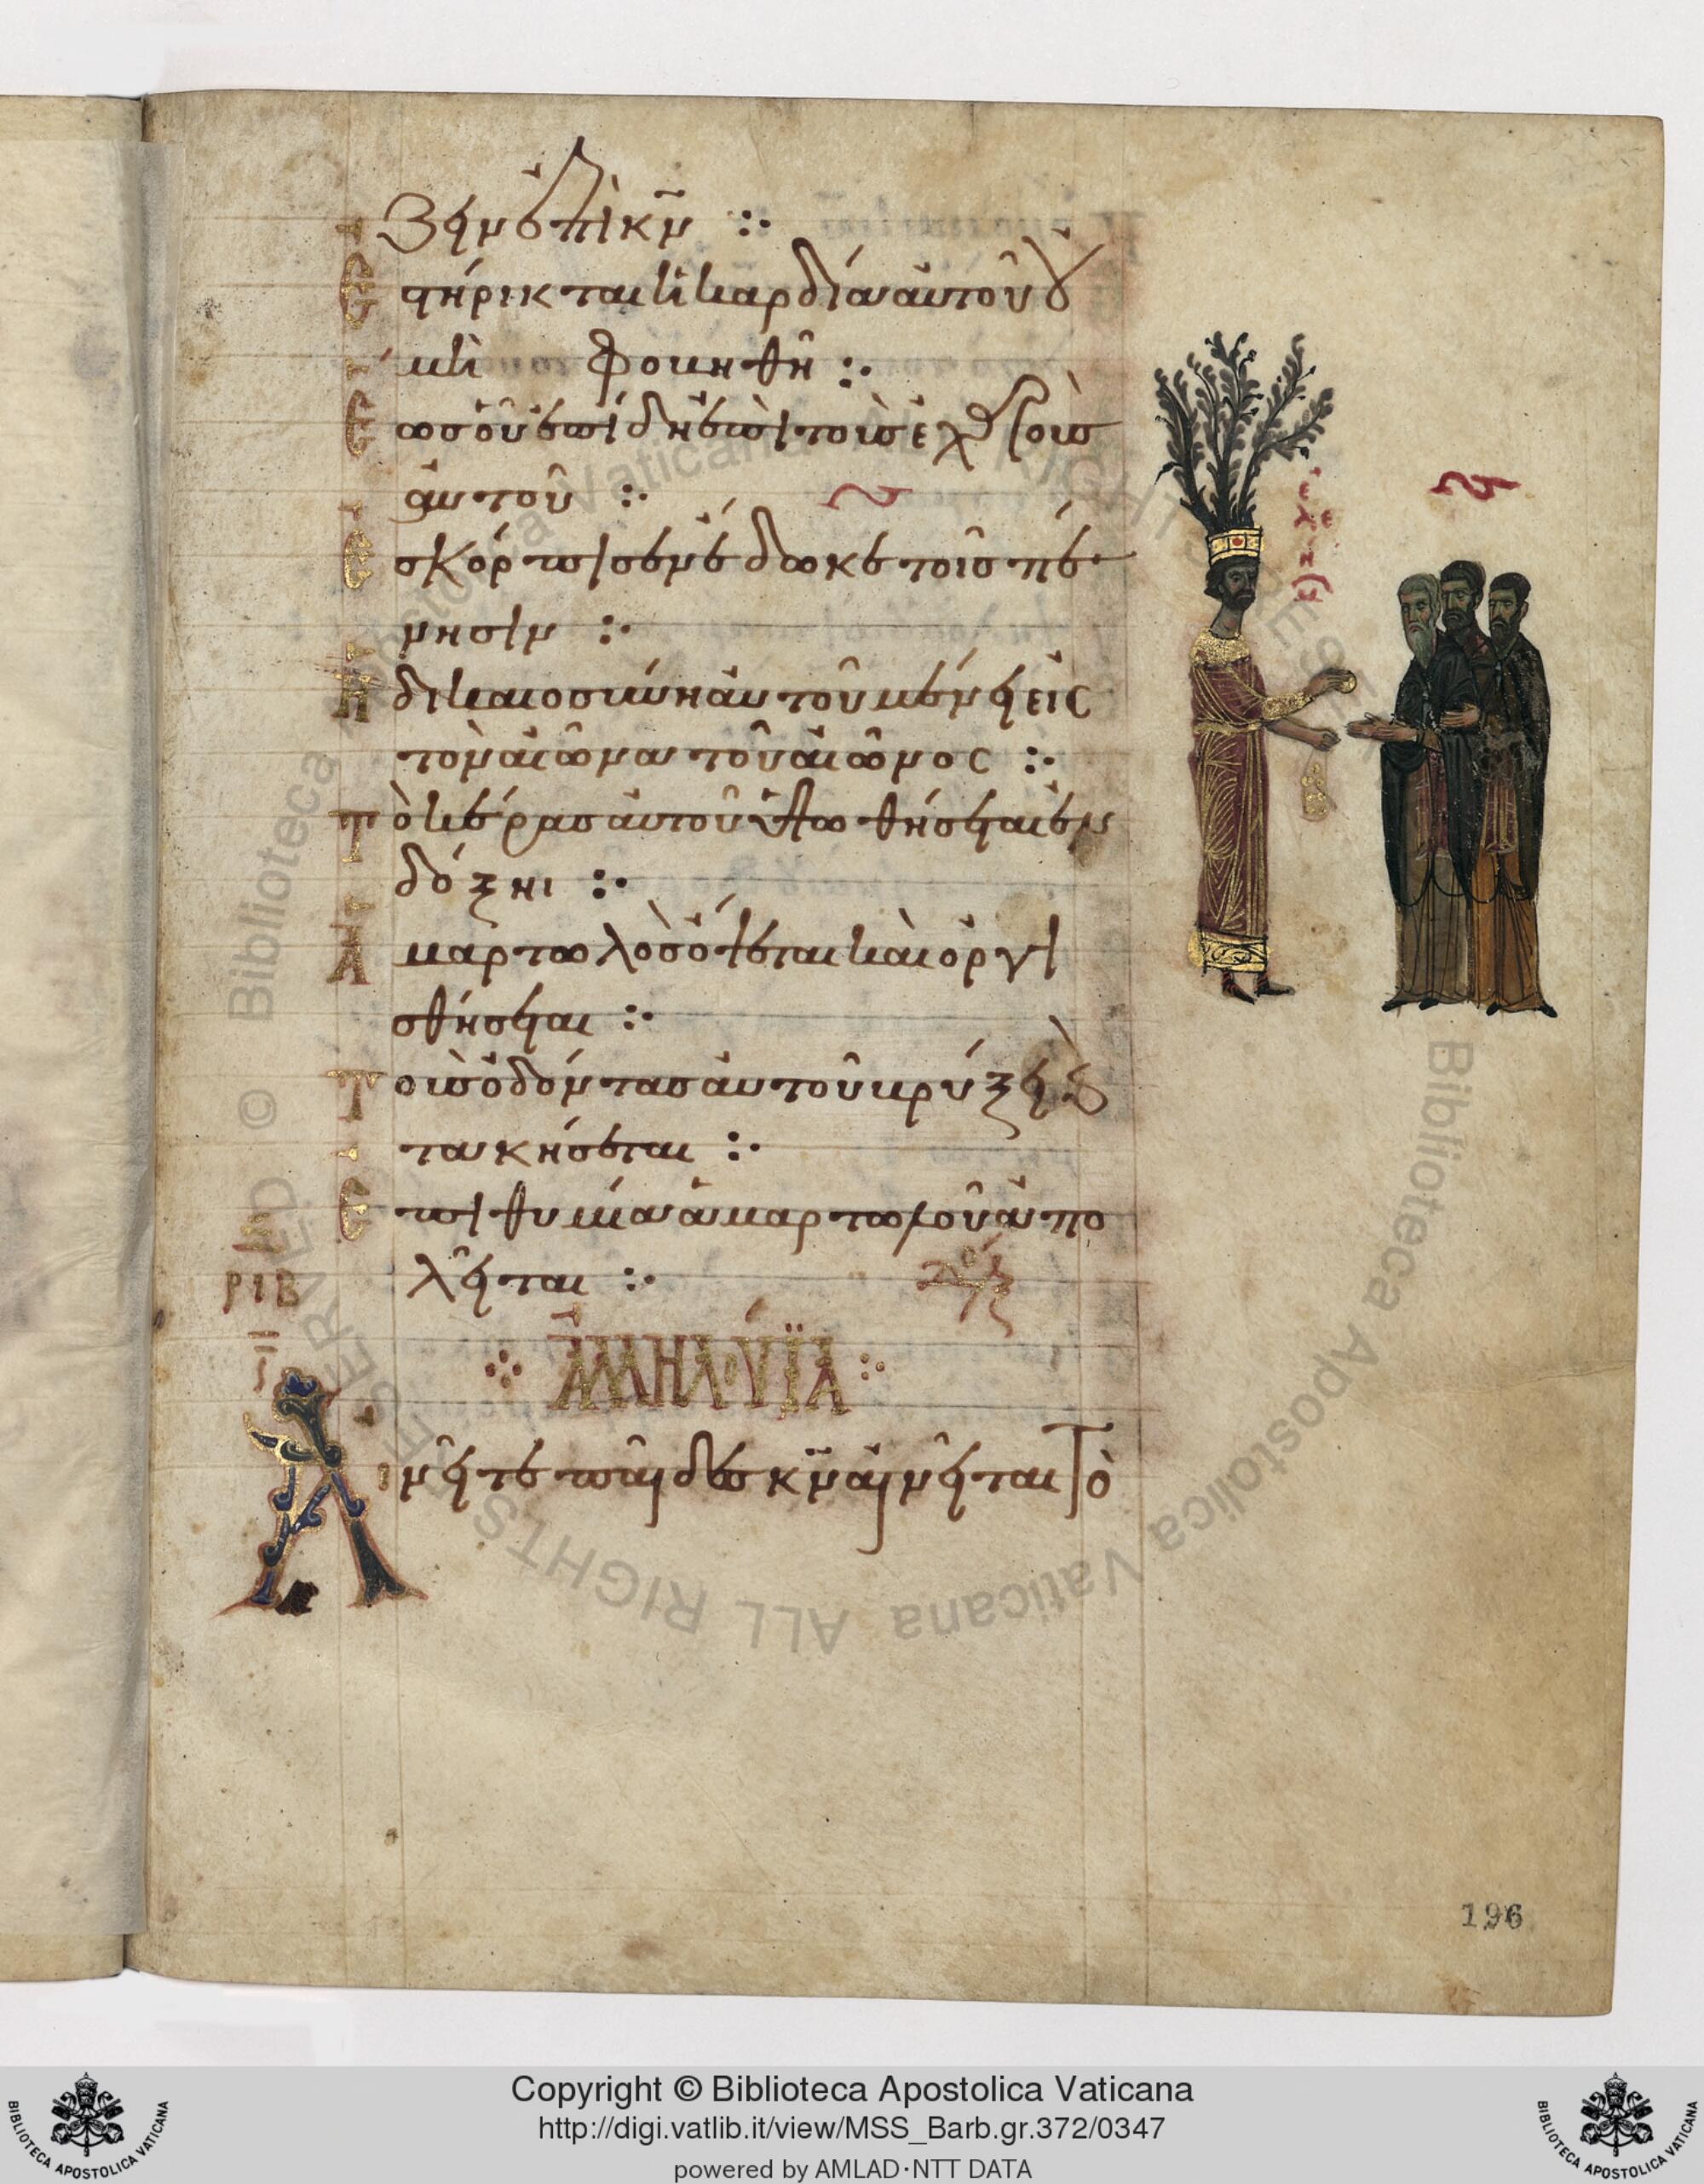 ζειν ἐπὶ κν̄ :·
Ἐστήρικται ἡ καρδία αὐτοῦ οὐ
μὴ φοβηθῆ :·
Ἕως οὗ ἐπίδη ἐπὶ τοὺς ἐχθροὺς
αὐτοῦ :·
Ἐσκόρπισεν ἔδωκε τοῖς πέ
νησιν :·
Ἡ δικαιοσύνη αὐτοῦ μένει εἰς
τὸν αἰῶνα τοῦ αἰῶνος :·
Τὸ κέρας αὐτοῦ ὑψωθήσεται ἐν
δόξηι :·
Ἁμαρτωλὸς ὄψεται καὶ ὀργι
σθήσεται :·
Τοὺς ὀδόντας αὐτοῦ βρύξει καὶ
τακήσεται :·
Ἐπιθυμία ἁμαρτωλοῦ ἀπο
λεῖται :·
ΡΙΒ
ἈΛΛΗΛΟΥΪΑ :·
Αἰνεῖτε παῖδες κν̄ αἰνεῖται τὸ
196
Biblioteca Apostolica Vaticana ALL RIGHTS RESERVED ©
Copyright © Biblioteca Apostolica Vaticana
http://digi.vatlib.it/view/MSS_Barb.gr.372/0347
powered by AMLAD·NTT DATA
BIBLIOTECA APOSTOLICA VATICANA
BIBLIOTECA APOSTOLICA VATICANA